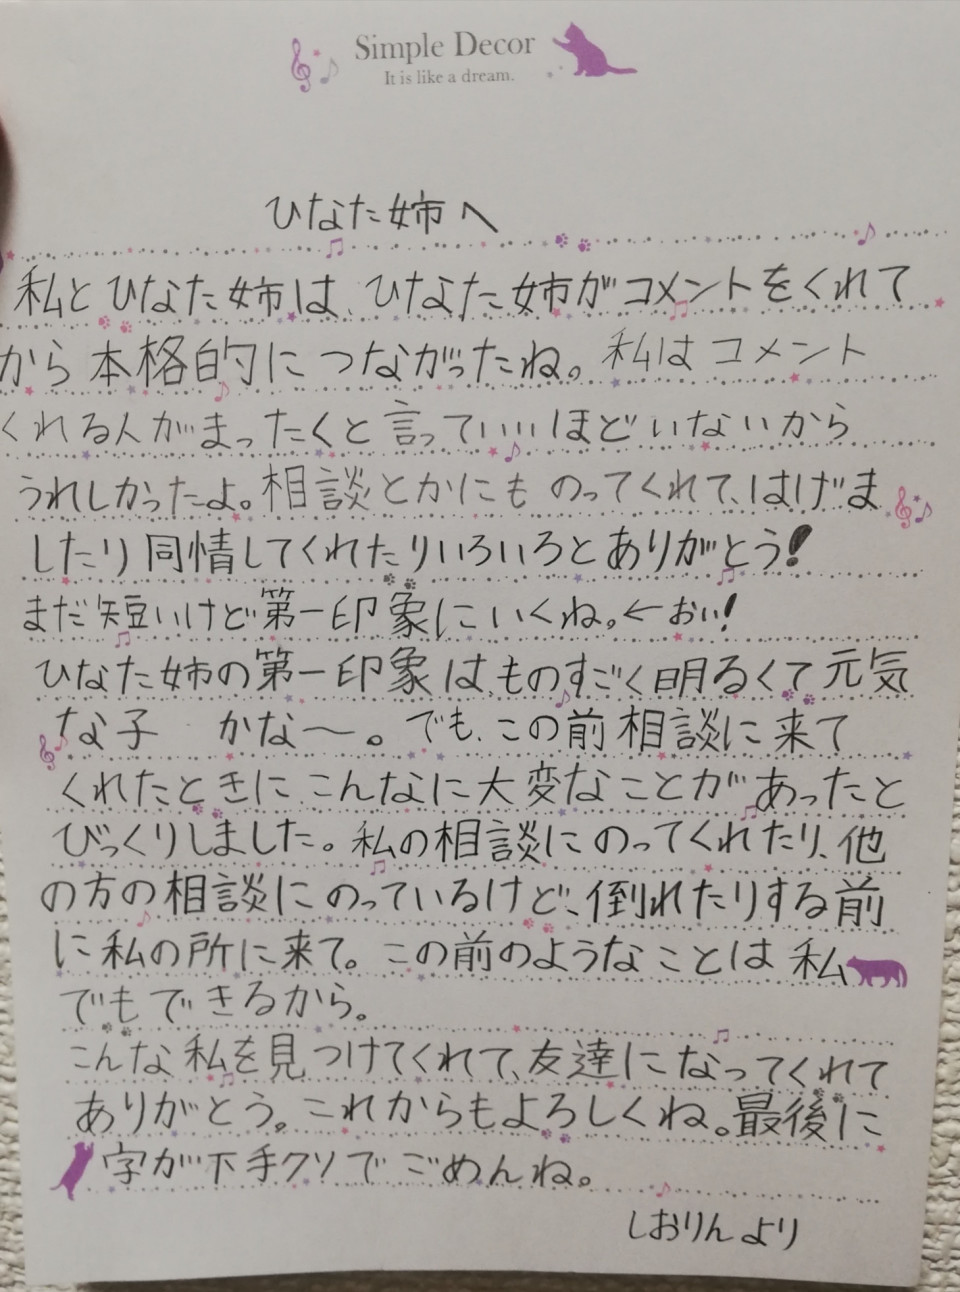 Simple Decor
It is like a dream.
ひなた姉へ
私とひなた姉は、ひなた姉がコメントをくれて
から本格的につながったね。私はコメント
くれる人がまったくと言っていいほどいないから
うれしかったよ。相談とかにものってくれて、はげま
したり同情してくれたりいろいろとありがとう!
まだ短いけど第一印象にいくね。←おい!
ひなた姉の第一印象は、ものすごく明るくて元気
な子 かな〜。でも、この前相談に来て
くれたときに、こんなに大変なことがあったと
びっくりしました。私の相談にのってくれたり、他
の方の相談にのっているけど、倒れたりする前
に私の所に来て。この前のようなことは私
でもできるから。
こんな私を見つけてくれて、友達になってくれて
ありがとう。これからもよろしくね。最後に
字が下手クソでごめんね。
しおりんより